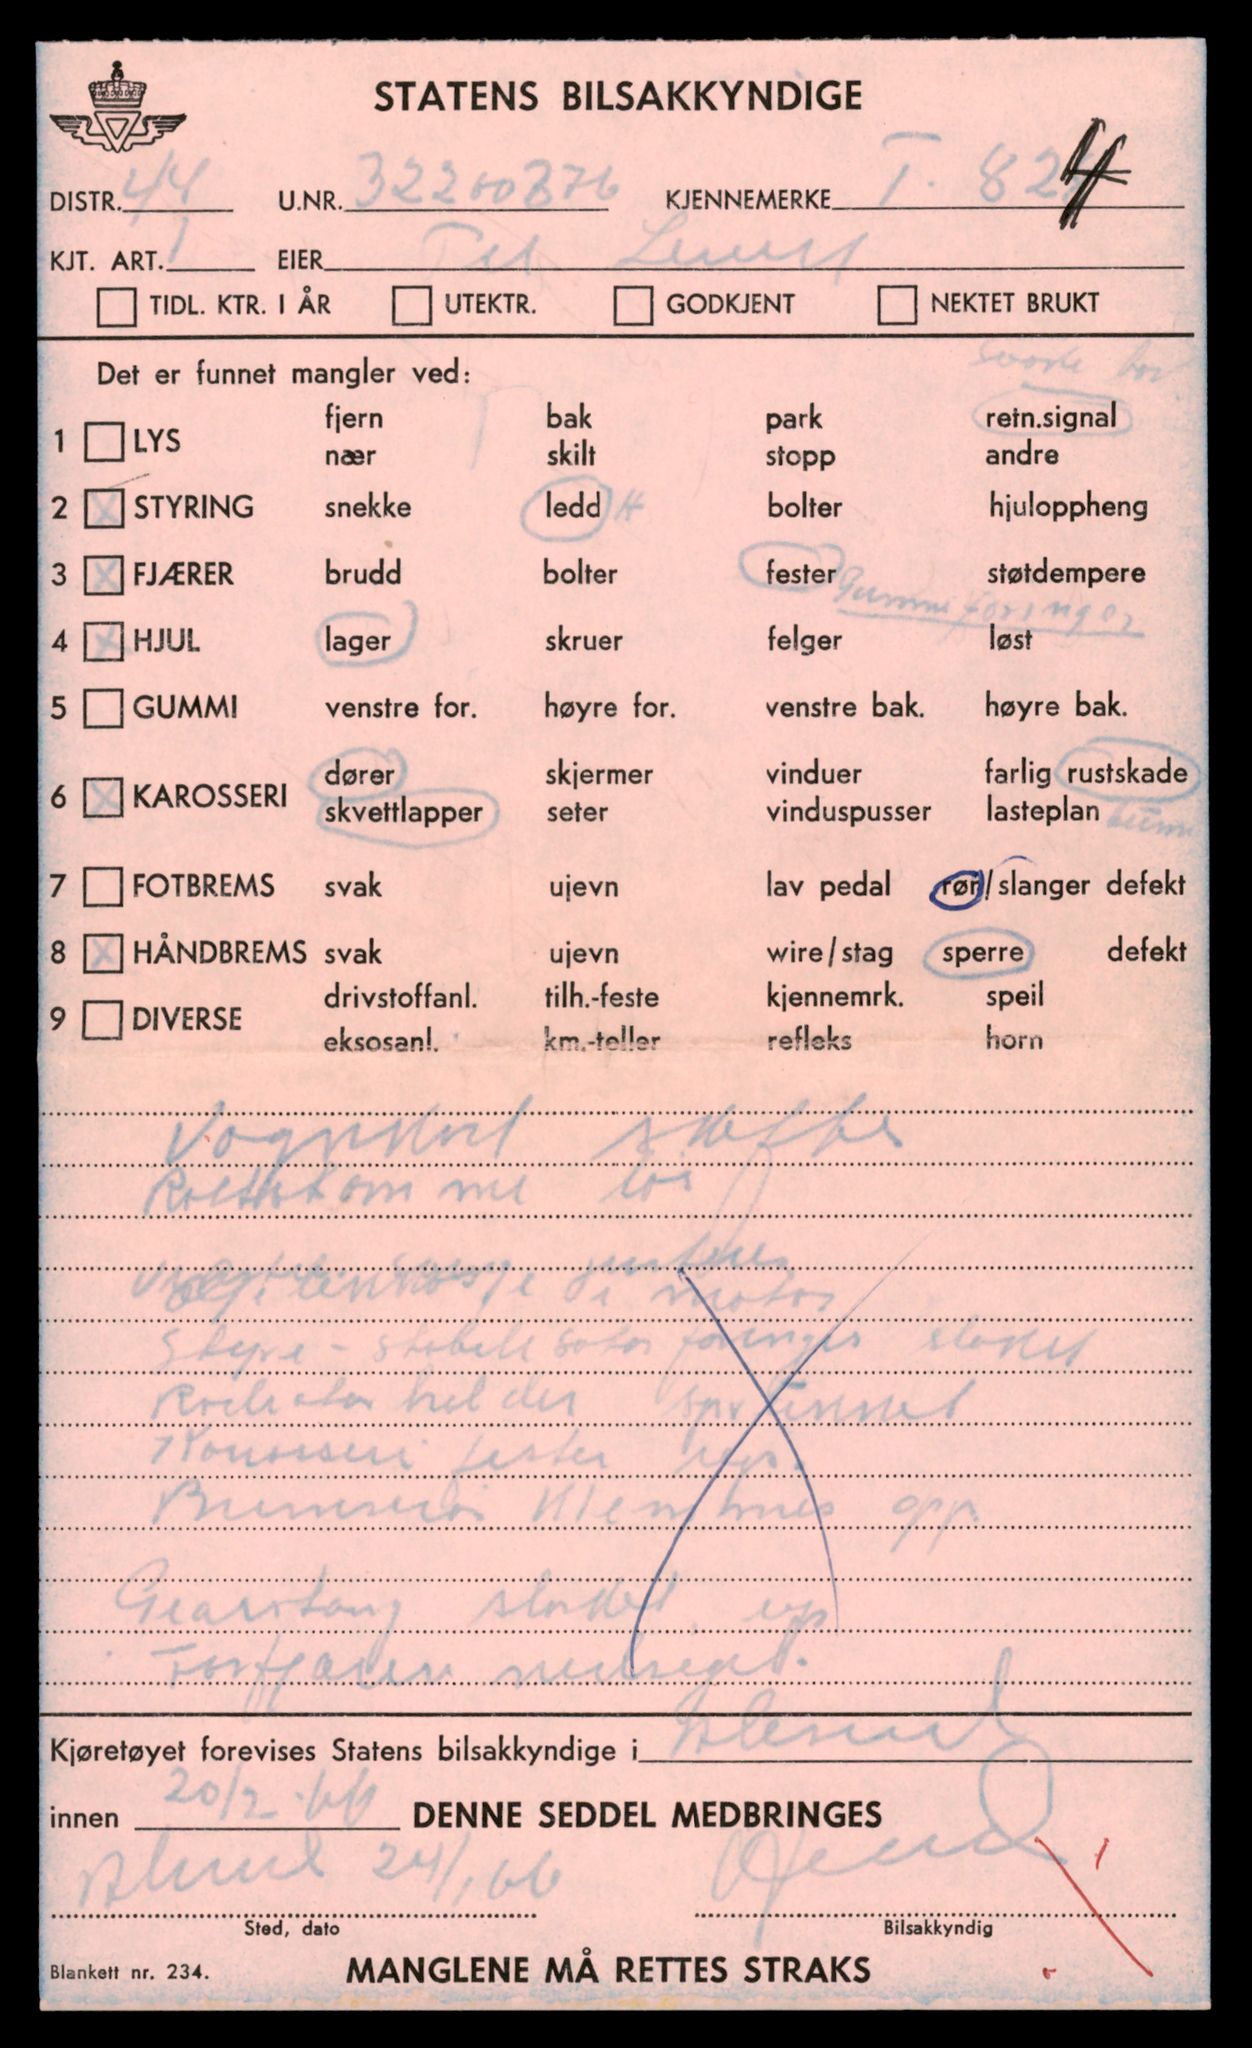 STATENS BILSAKKYNDIGE
DISTR. 44 U.NR. KJENNEMERKE T. 824
KJT. ART. 1 EIER
TIDL. KTR. I ÅR UTEKTR. GODKJENT NEKTET BRUKT
Det er funnet mangler ved:
fjern bak park retn.signal
1 LYS
nær skilt stopp andre
2 X STYRING snekke ledd H bolter hjuloppheng
3 X FJÆRER brudd bolter fester støtdempere
Gummiforinger
4 X HJUL lager skruer felger løst
5 GUMMI venstre for. høyre for. venstre bak. høyre bak.
dører skjermer vinduer farlig rustskade
6 X KAROSSERI
skvettlapper seter vinduspusser lasteplan
7 FOTBREMS svak ujevn lav pedal rør/slanger defekt
8 X HÅNDBREMS svak ujevn wire/stag sperre defekt
drivstoffanl. tilh.-feste kjennemrk. speil
9 DIVERSE
eksosanl. km.-teller refleks horn
Vognkort skaffes
Rattstamme løs
i motor
foringer slakket
Radiator holder
Karosseri fester rep.
opp
Gearstang slakket rep
Forfjærer nedseget.
Kjøretøyet forevises Statens bilsakkyndige i Ålesund
innen 20/2-66 DENNE SEDDEL MEDBRINGES
Ålesund 24/1 66
Sted, dato Bilsakkyndig
Blankett nr. 234. MANGLENE MÅ RETTES STRAKS